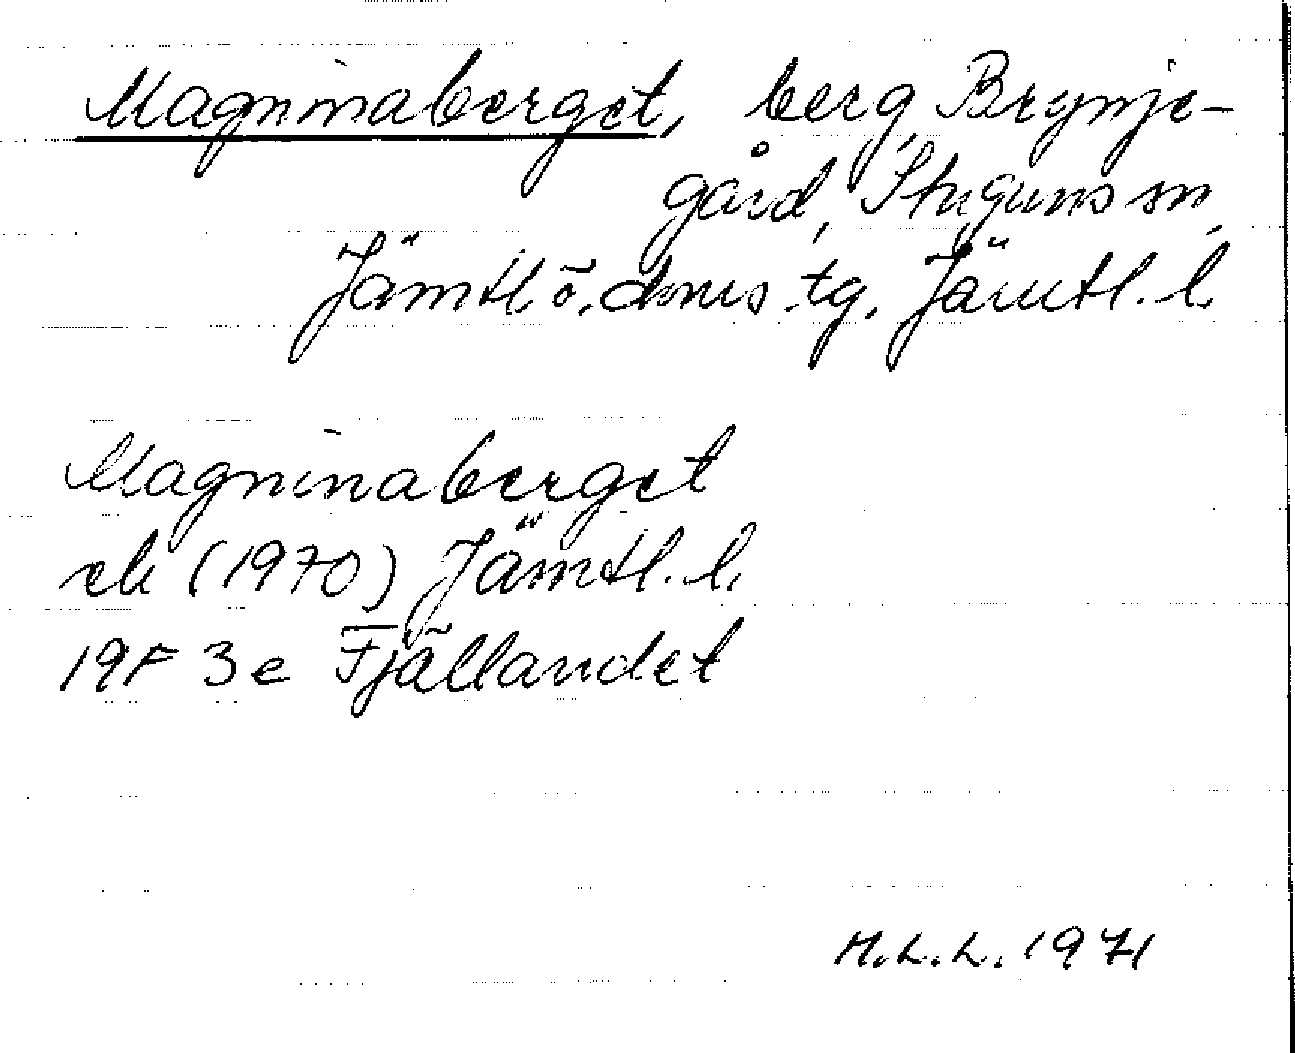 Magninaberget, berg, Brynje-
gård, Stuguns sn,
Jämtl. ö. dms tg. Jämtl. l.
Magninaberget
ek (1970) Jämtl. l.
19F 3e Fjällandet
M.L.L. 1971